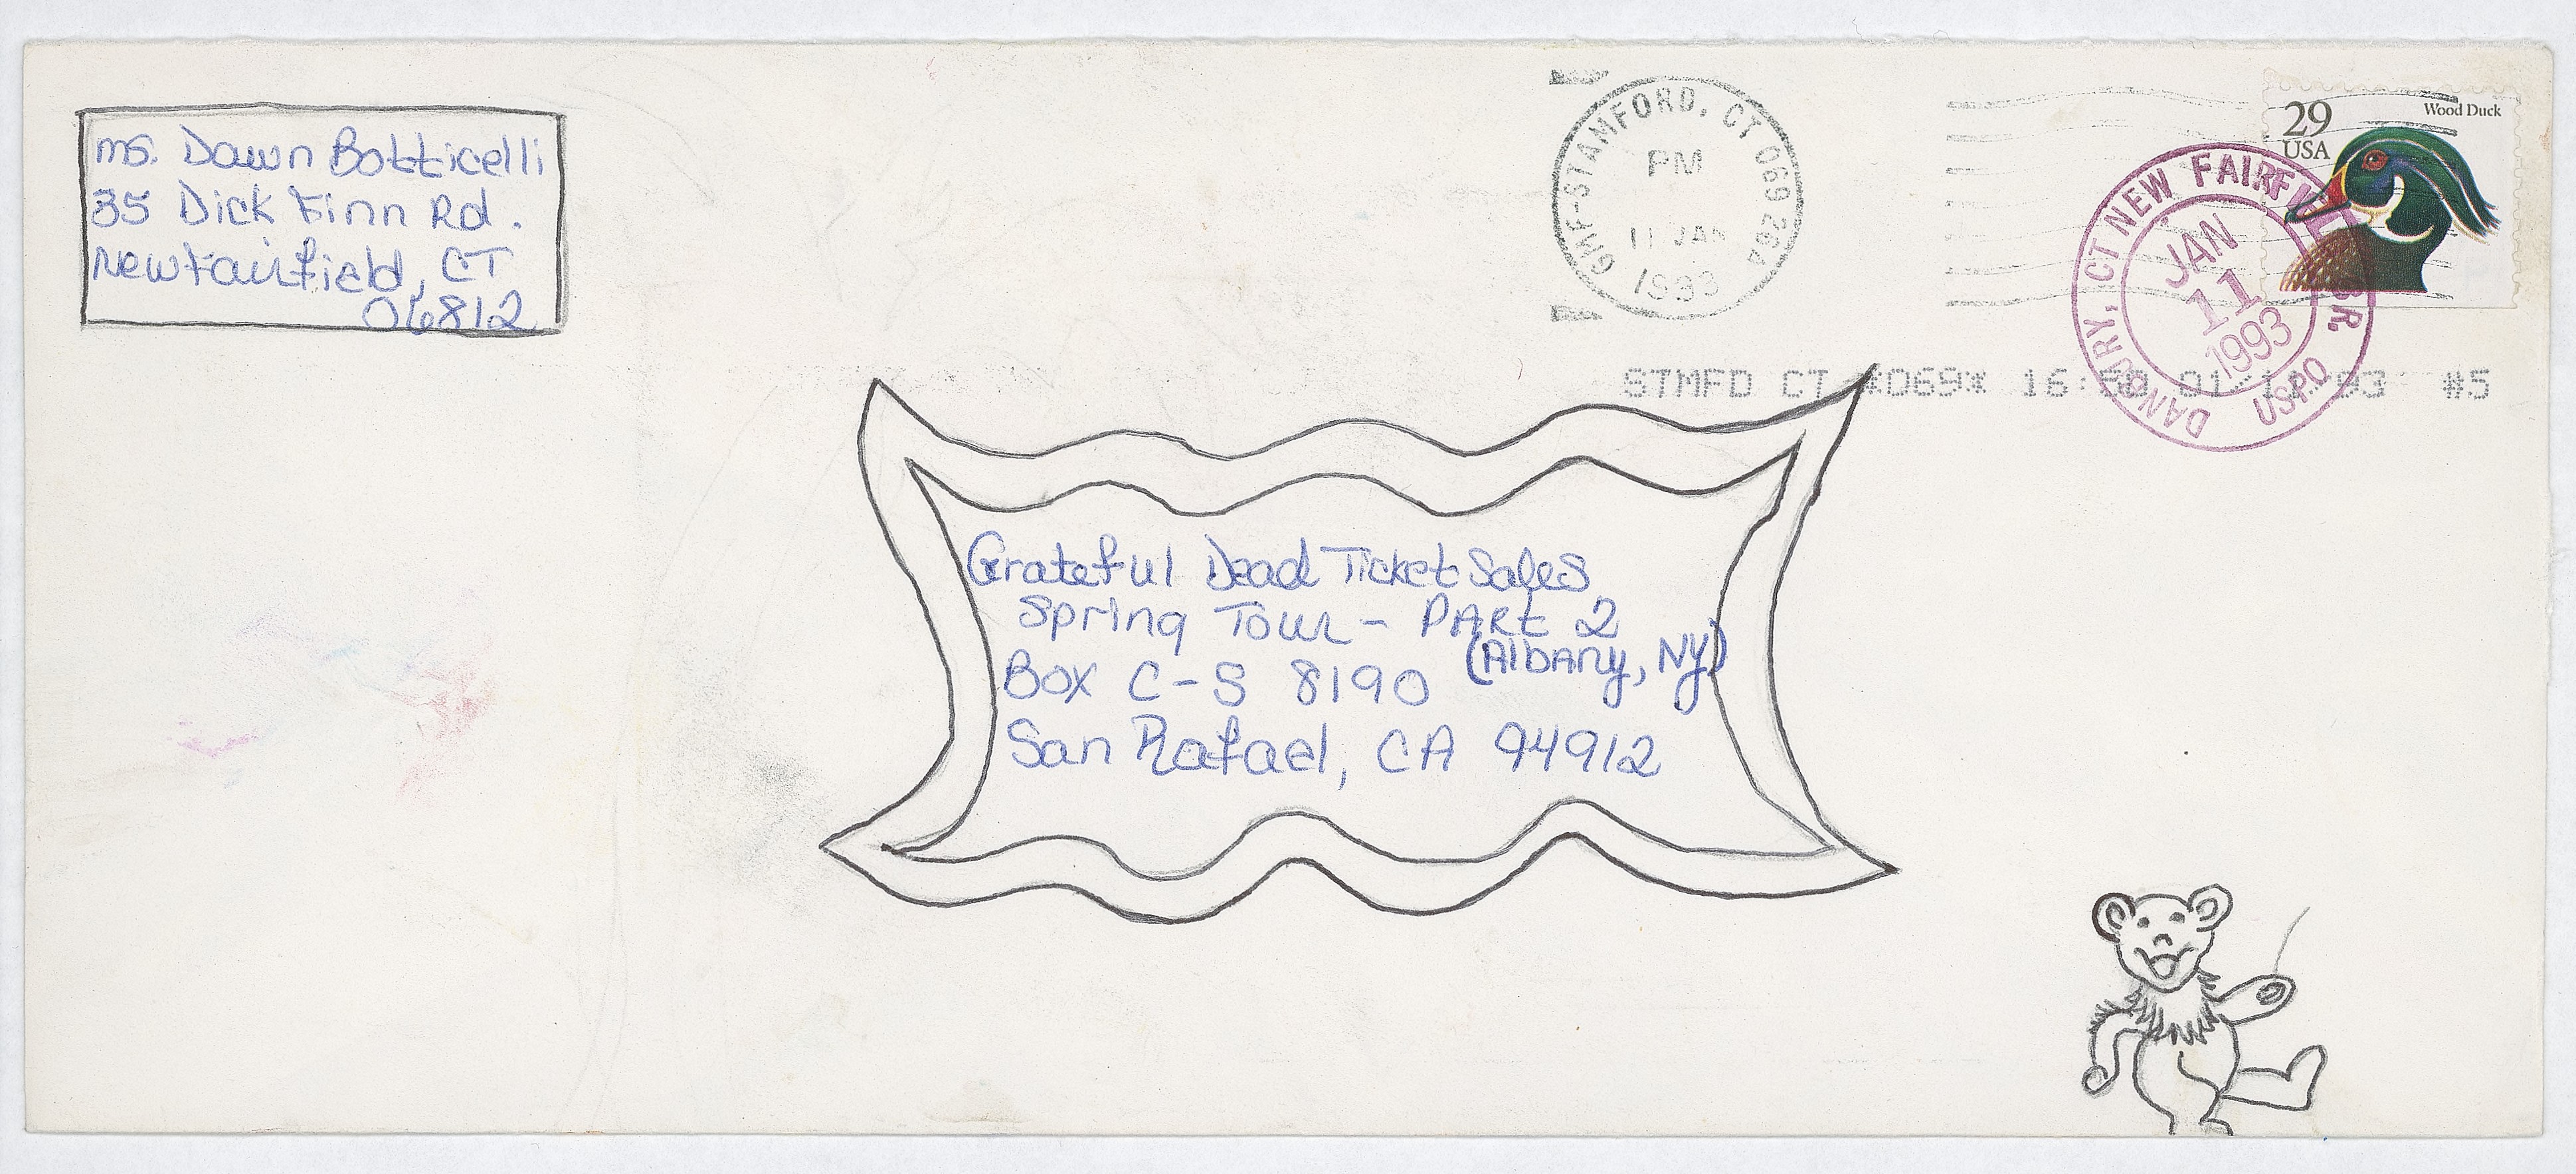 ms. Dawn Botticelli
35 Dick Finn Rd.
New Fairfield, CT
06812
GMF-STAMFORD, CT 069 26A
PM
11 JAN
1993
29
USA
Wood Duck
DANBURY, CT NEW FAIRFIELD BR.
JAN
11
1993
USPO
STMFD CT *069* 16:50 01/11/93 #5
Grateful Dead Ticket Sales
Spring Tour - PARt 2
(Albany, NY)
Box C-S 8190
San Rafael, CA 94912